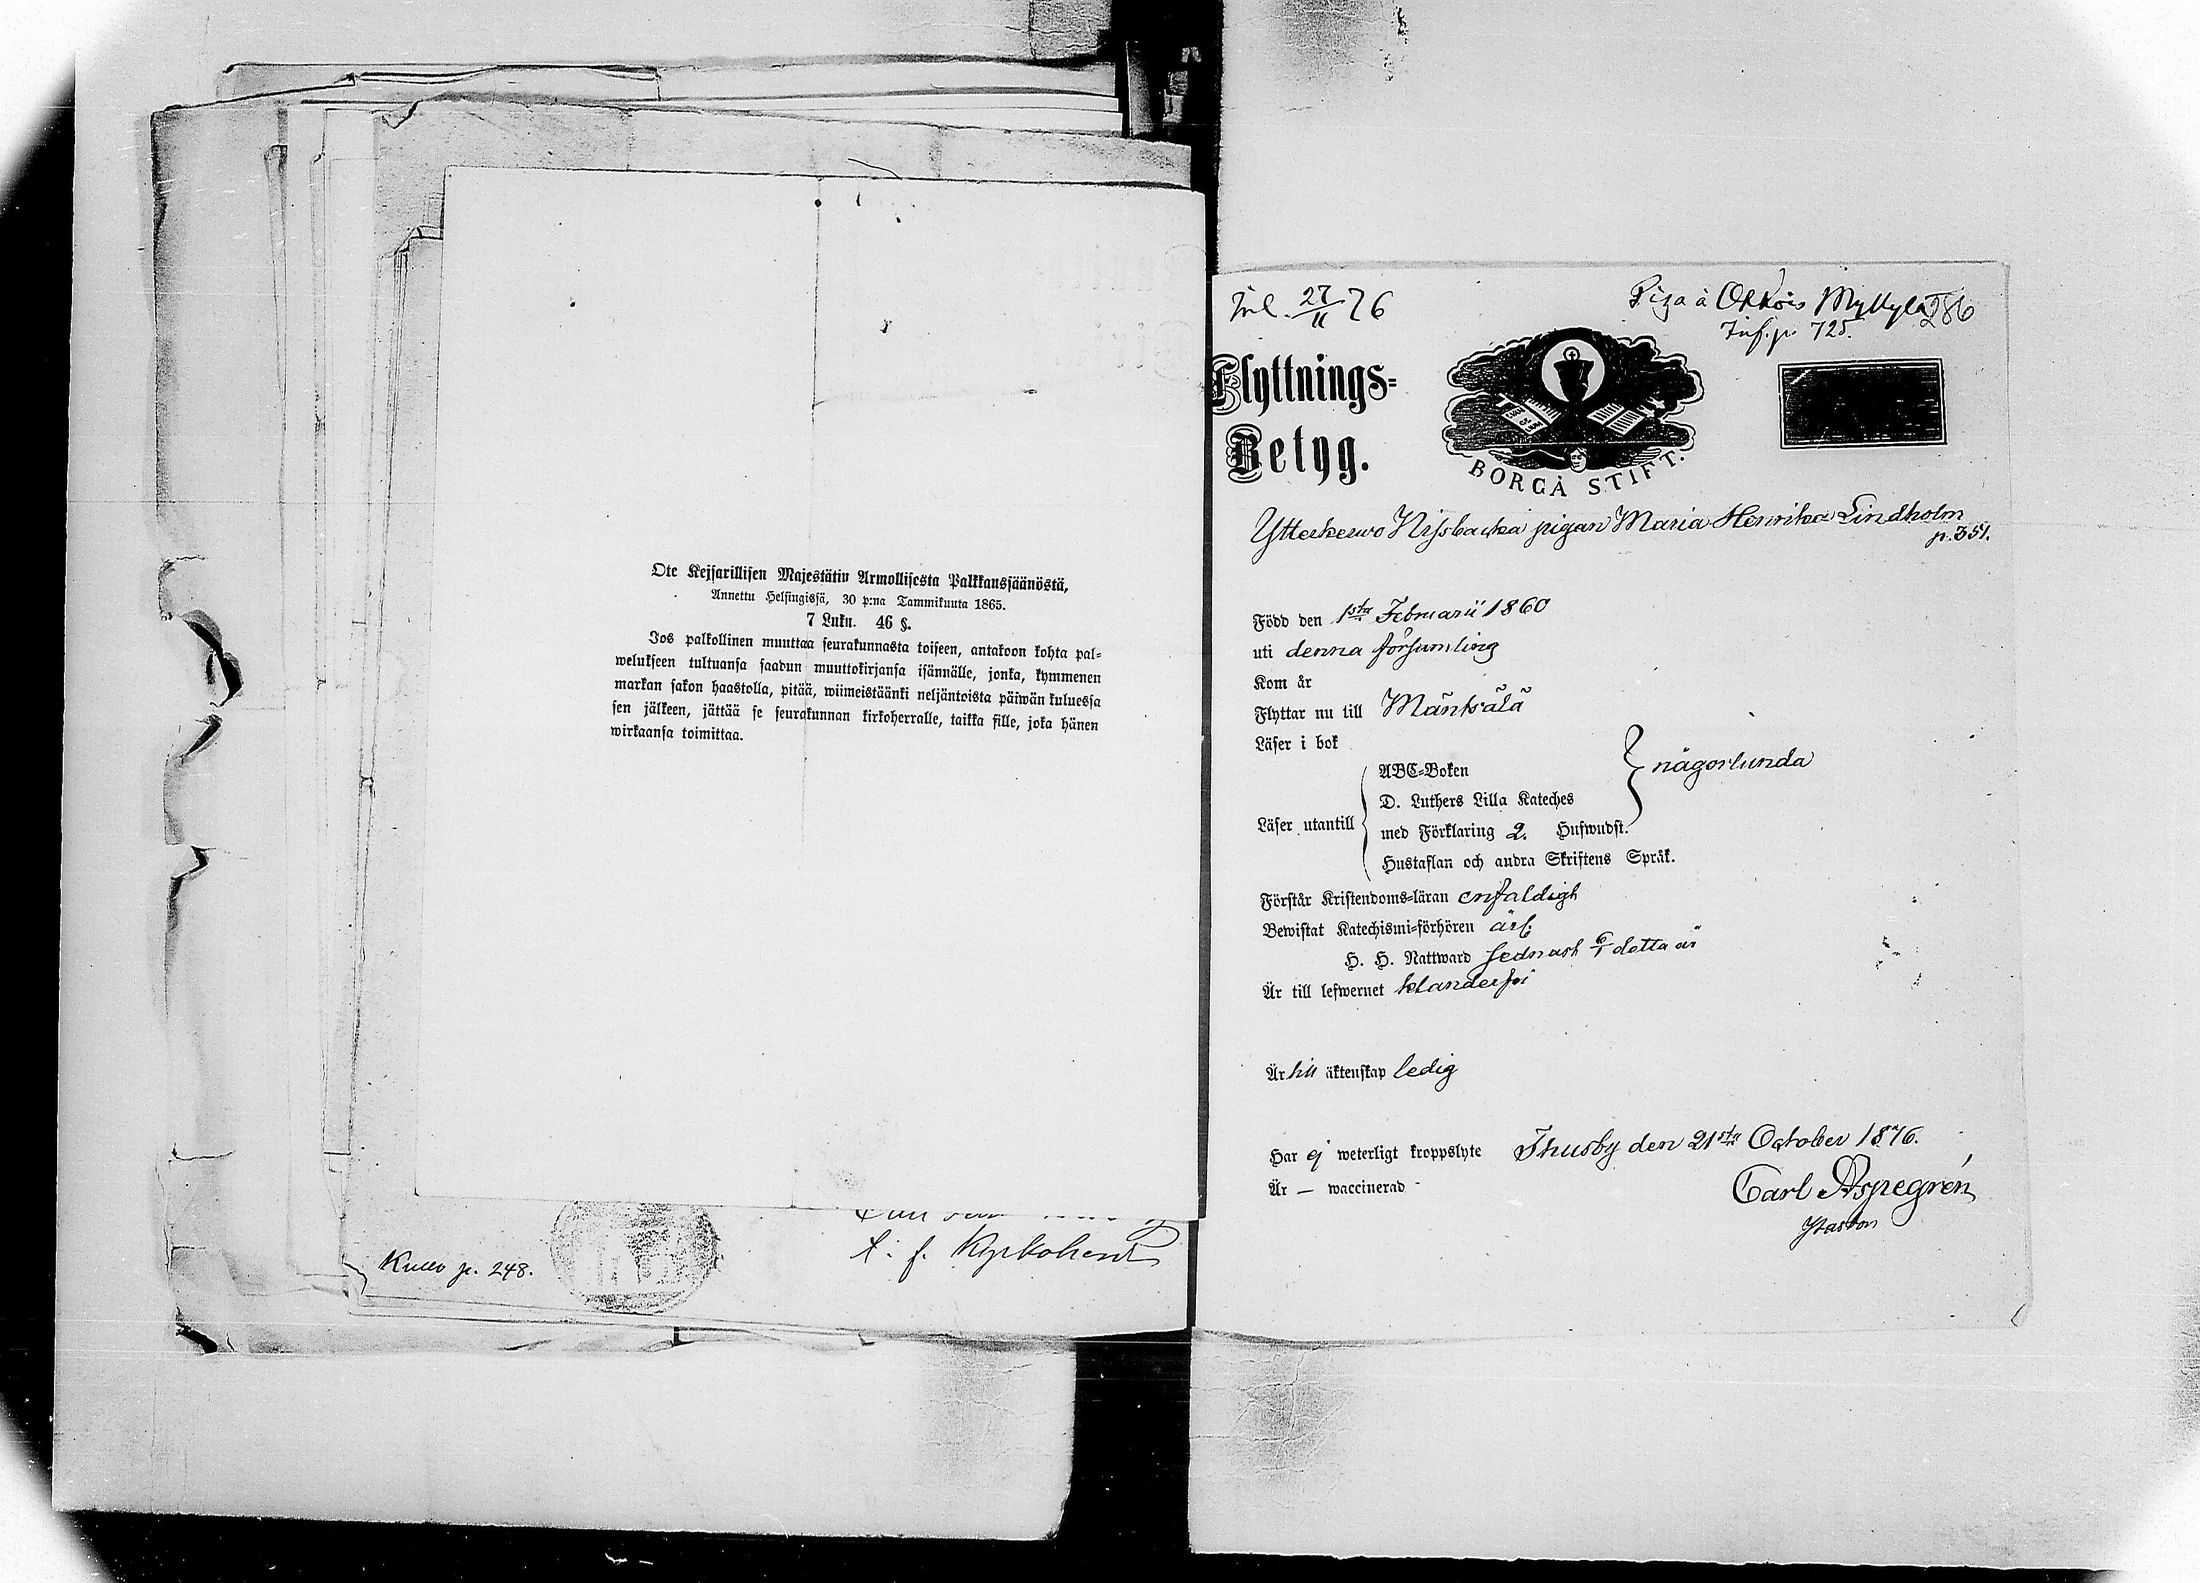 Ote Keisarillisen Majestätin Armollisesta Palkkaussäänöstä,
Annettu Helsingissä, 30 p:na Tammikuuta 1865.
7 Luku. 46 §.
Jos palkollinen muuttaa seurakunnasta toiseen, antakoon kohta pal=
welukseen tultuansa saadun muuttokirjansa isännälle, jonka, kymmenen
markan sakon haastolla, pitää, wiimeistäänki neljäntoista päiwän kuluessa
sen jälkeen, jättää se seurakunnan kirkoherralle, taikka sille, joka hänen
wirkaansa toimittaa.
p. 248.
t. f. Kyrkoherde
Inl. 27/11 76
Piga å Ohkois Myllylä 286
Inf. p. 725.
Flyttnings=
Betyg.
BORGÅ STIFT.
Ytterkerwo Nissbacka pigan Maria Henrika Lindholm
p. 351.
Född den 1sta Februarii 1860
uti denna församling
Kom år
Flyttar nu till Mäntsälä
Läser i bok
ABC=Boken
någorlunda
D. Luthers Lilla Kateches
Läser utantill
med Förklaring 2. Hufwudst.
Hustaflan och andra Skriftens Språk.
Förstår Kristendoms=läran enfaldigt
Bewistat Katechismi=förhören årl.
H. H. Nattward sednast 6/1 detta år
Är till lefwernet klanderfri
Är till äktenskap ledig
Har ej weterligt kroppslyte Thusby den 21sta October 1876.
Är — waccinerad
Carl Aspegrén
Pastor